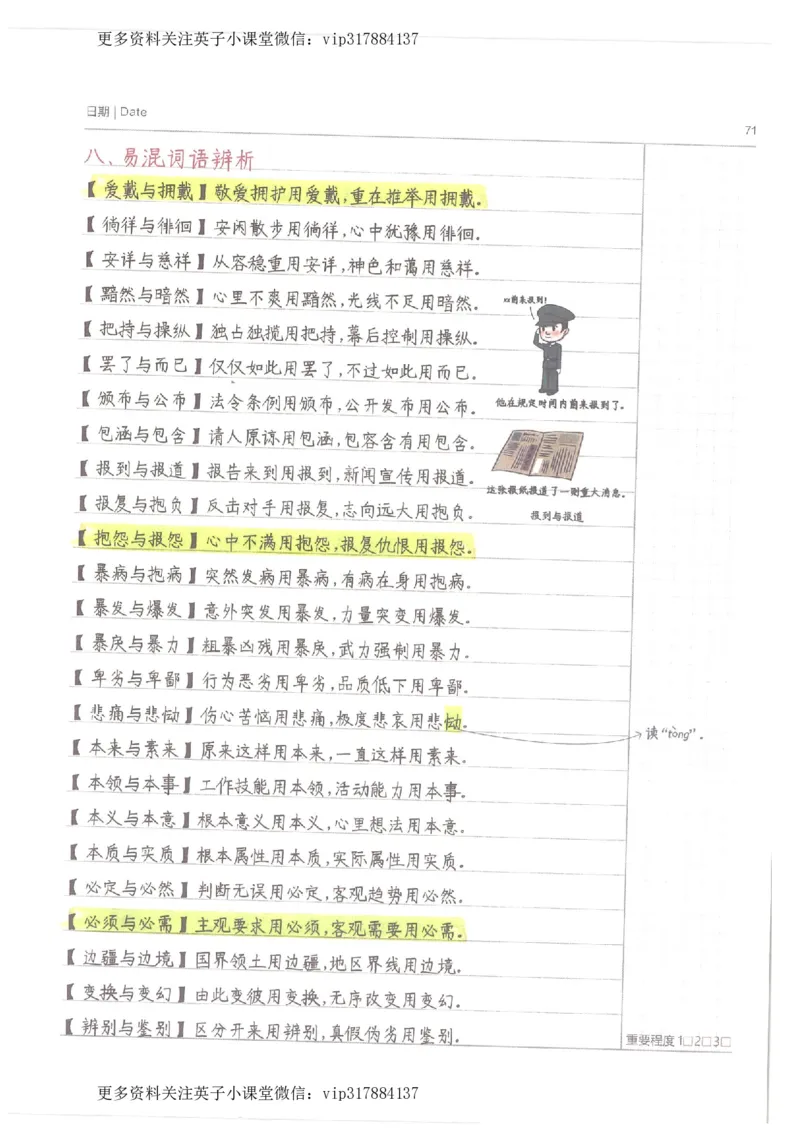 更多资料关注英子小课堂微信：vip317884137
日期 | Date
71
八、易混词语辨析
【爱戴与拥戴】敬爱拥护用爱戴,重在推举用拥戴.
【徜徉与徘徊】安闲散步用徜徉,心中犹豫用徘徊.
【安详与慈祥】从容稳重用安详,神色和蔼用慈祥.
【黯然与暗然】心里不爽用黯然,光线不足用暗然.
【把持与操纵】独占独揽用把持,幕后控制用操纵.
【罢了与而已】仅仅如此用罢了,不过如此用而已.
【颁布与公布】法令条例用颁布,公开发布用公布.
【包涵与包含】请人原谅用包涵,包容含有用包含.
【报到与报道】报告来到用报到,新闻宣传用报道.
【报复与抱负】反击对手用报复,志向远大用抱负.
【抱怨与报怨】心中不满用抱怨,报复仇恨用报怨.
【暴病与抱病】突然发病用暴病,有病在身用抱病.
【暴发与爆发】意外突发用暴发,力量突变用爆发.
【暴戾与暴力】粗暴凶残用暴戾,武力强制用暴力.
【卑劣与卑鄙】行为恶劣用卑劣,品质低下用卑鄙.
【悲痛与悲恸】伤心苦恼用悲痛,极度悲哀用悲恸.
【本来与素来】原来这样用本来,一直这样用素来.
【本领与本事】工作技能用本领,活动能力用本事.
【本义与本意】根本意义用本义,心里想法用本意.
【本质与实质】根本属性用本质,实际属性用实质.
【必定与必然】判断无误用必定,客观趋势用必然.
【必须与必需】主观要求用必须,客观需要用必需.
【边疆与边境】国界领土用边疆,地区界线用边境.
【变换与变幻】由此变彼用变换,无序改变用变幻.
【辨别与鉴别】区分开来用辨别,真假伪劣用鉴别.
前来报到!
他在规定时间内前来报到了.
这张报纸报道了一则重大消息.
报到与报道
读“tòng”.
重要程度 1□2□3□
更多资料关注英子小课堂微信：vip317884137